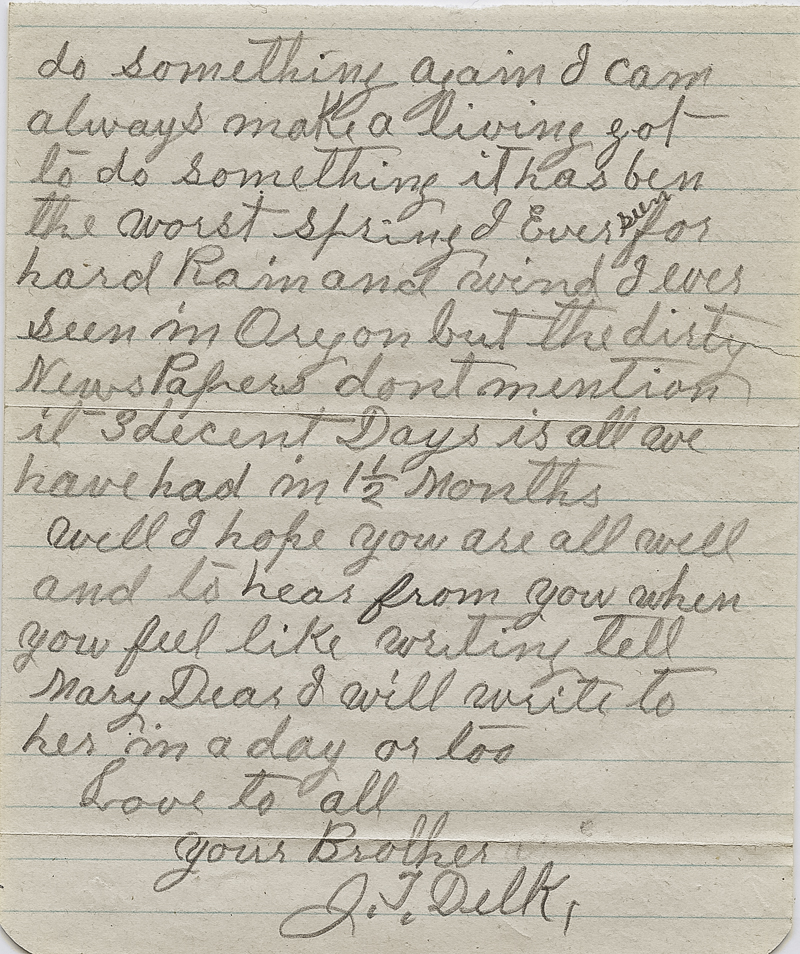 do something again I can
always make a living got
to do something it has ben
the worst spring I Ever seen for
hard Rain and wind I ever
seen in Oregon but the dirty
News Papers dont mention
it 3 decent Days is all we
have had in 1½ Months
well I hope you are all well
and to hear from you when
you feel like writing tell
Mary Dear I will write to
her in a day or too
Love to all
your Brother
J. T. Delk,